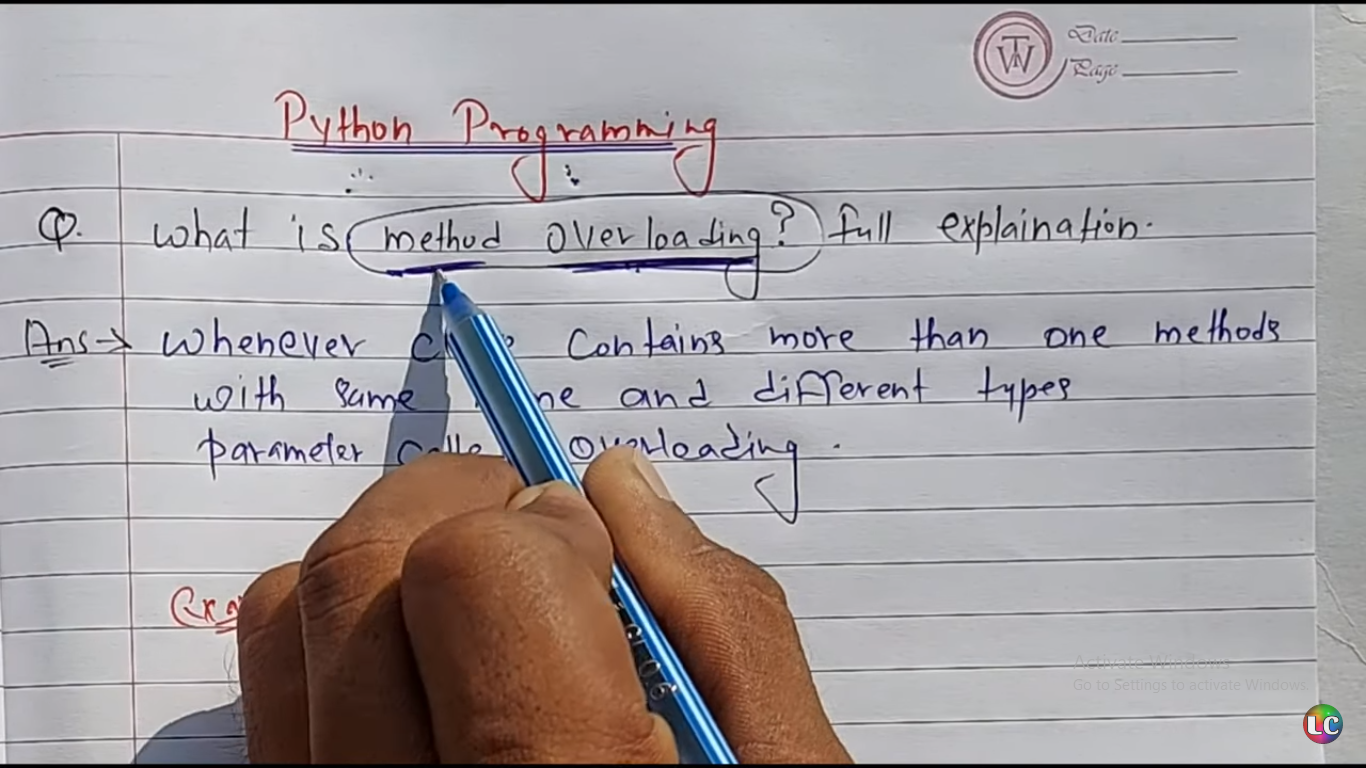 Date
Page
Python Programming
Q. What is method overloading? full explaination.
Ans→ Whenever contains more than one methods
with same and different types
parameter overloading.
Activate Windows
Go to Settings to activate Windows.
LC